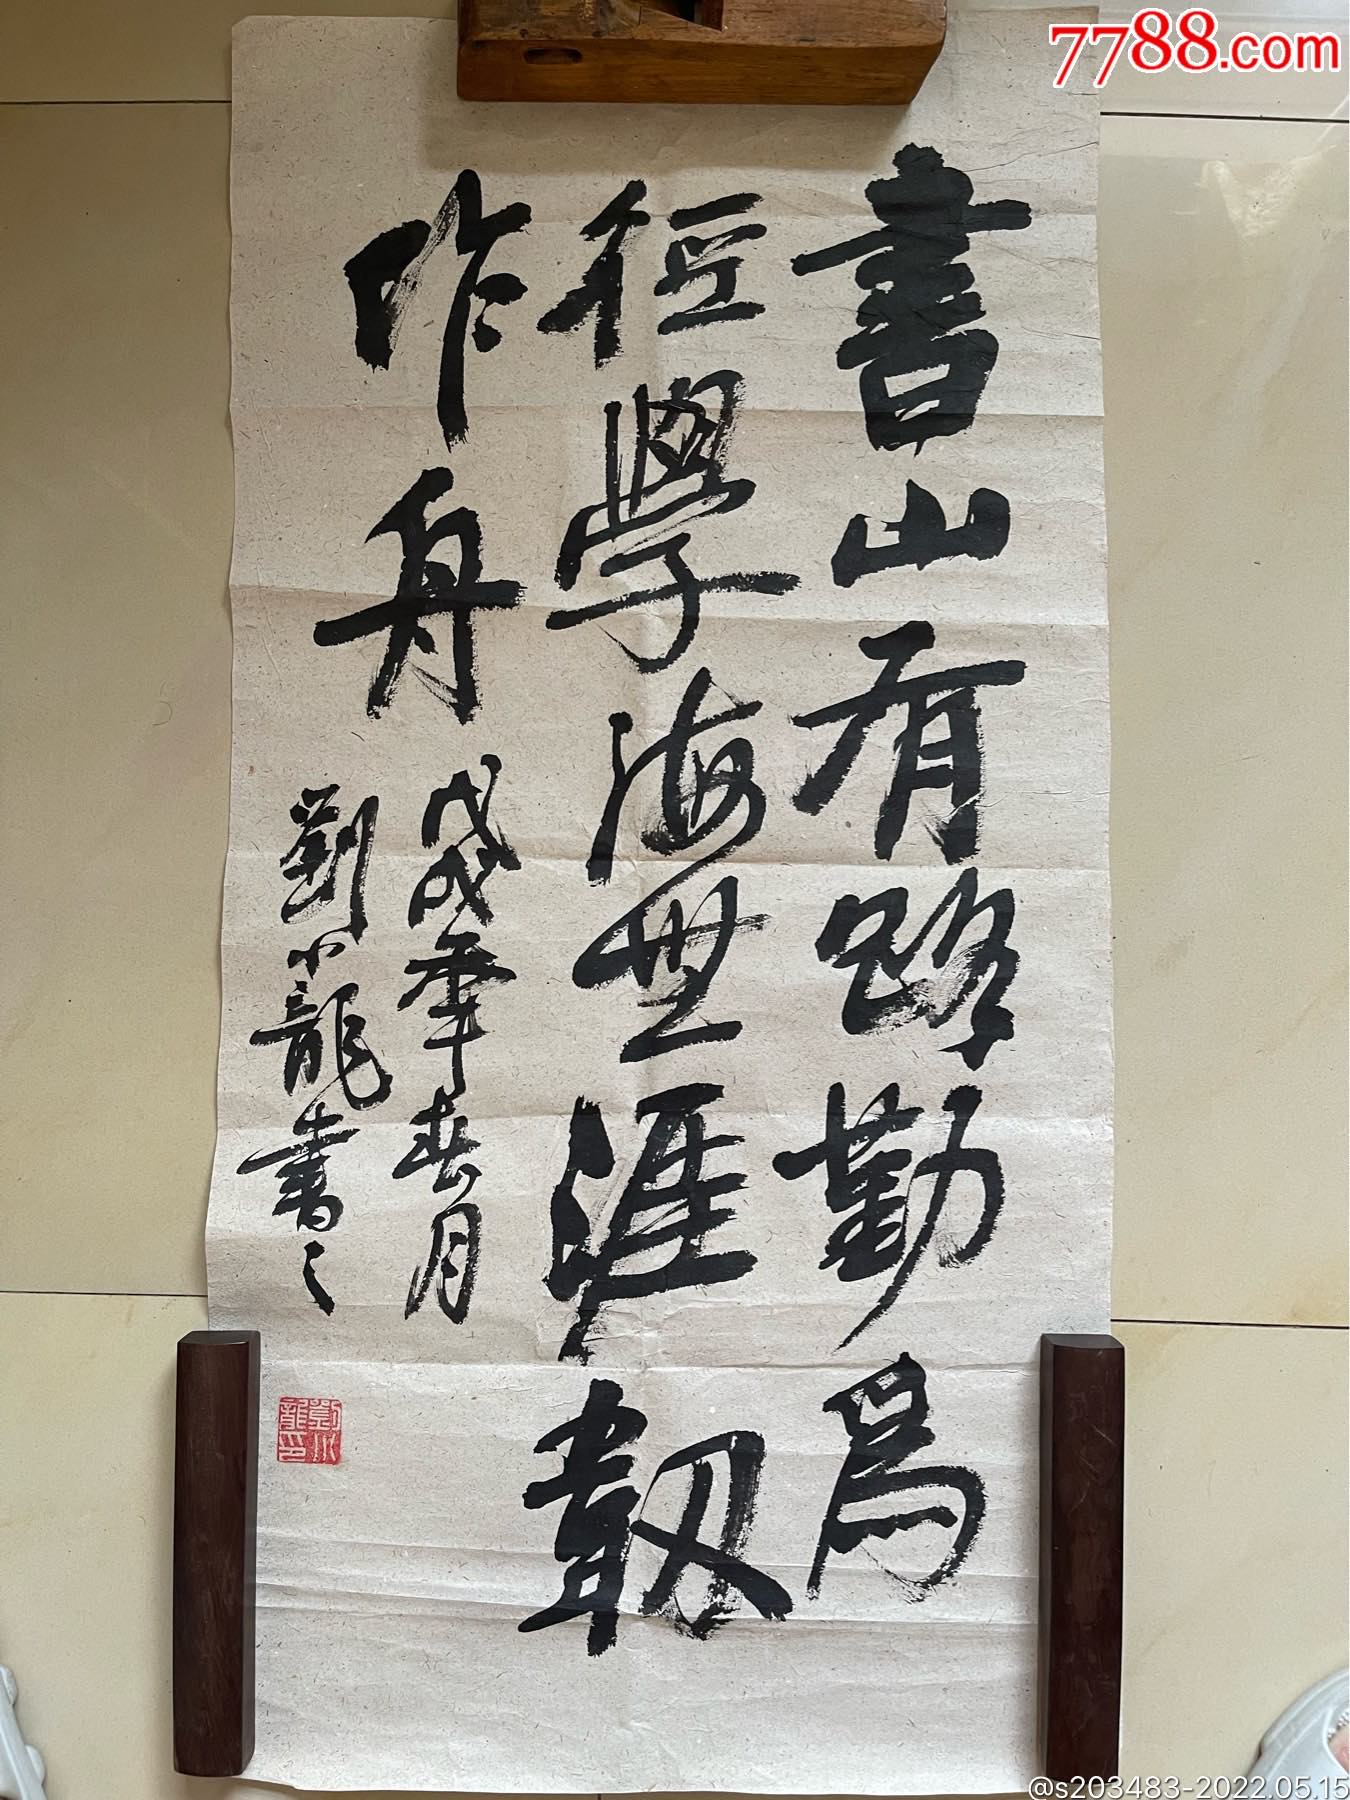 7788.com
書山有路勤爲
徑學海無涯韌
作舟
戊戌年春月
劉小龍書之
劉小龍印
@s203483-2022.05.15